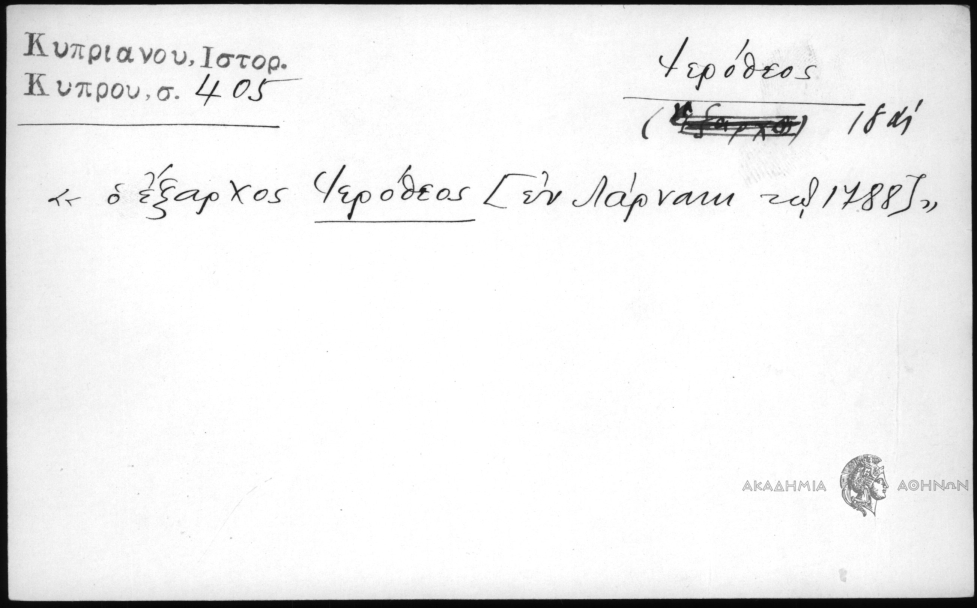 Κυπριανου, Ιστορ.
Κυπρου, σ. 405
Ἱερόθεος
(ἔξαρχος) 18 αἰ
« ὁ ἔξαρχος Ἱερόθεος [ἐν Λάρνακι τῷ 1788] »
ΑΚΑΔΗΜΙΑ ΑΘΗΝΩΝ